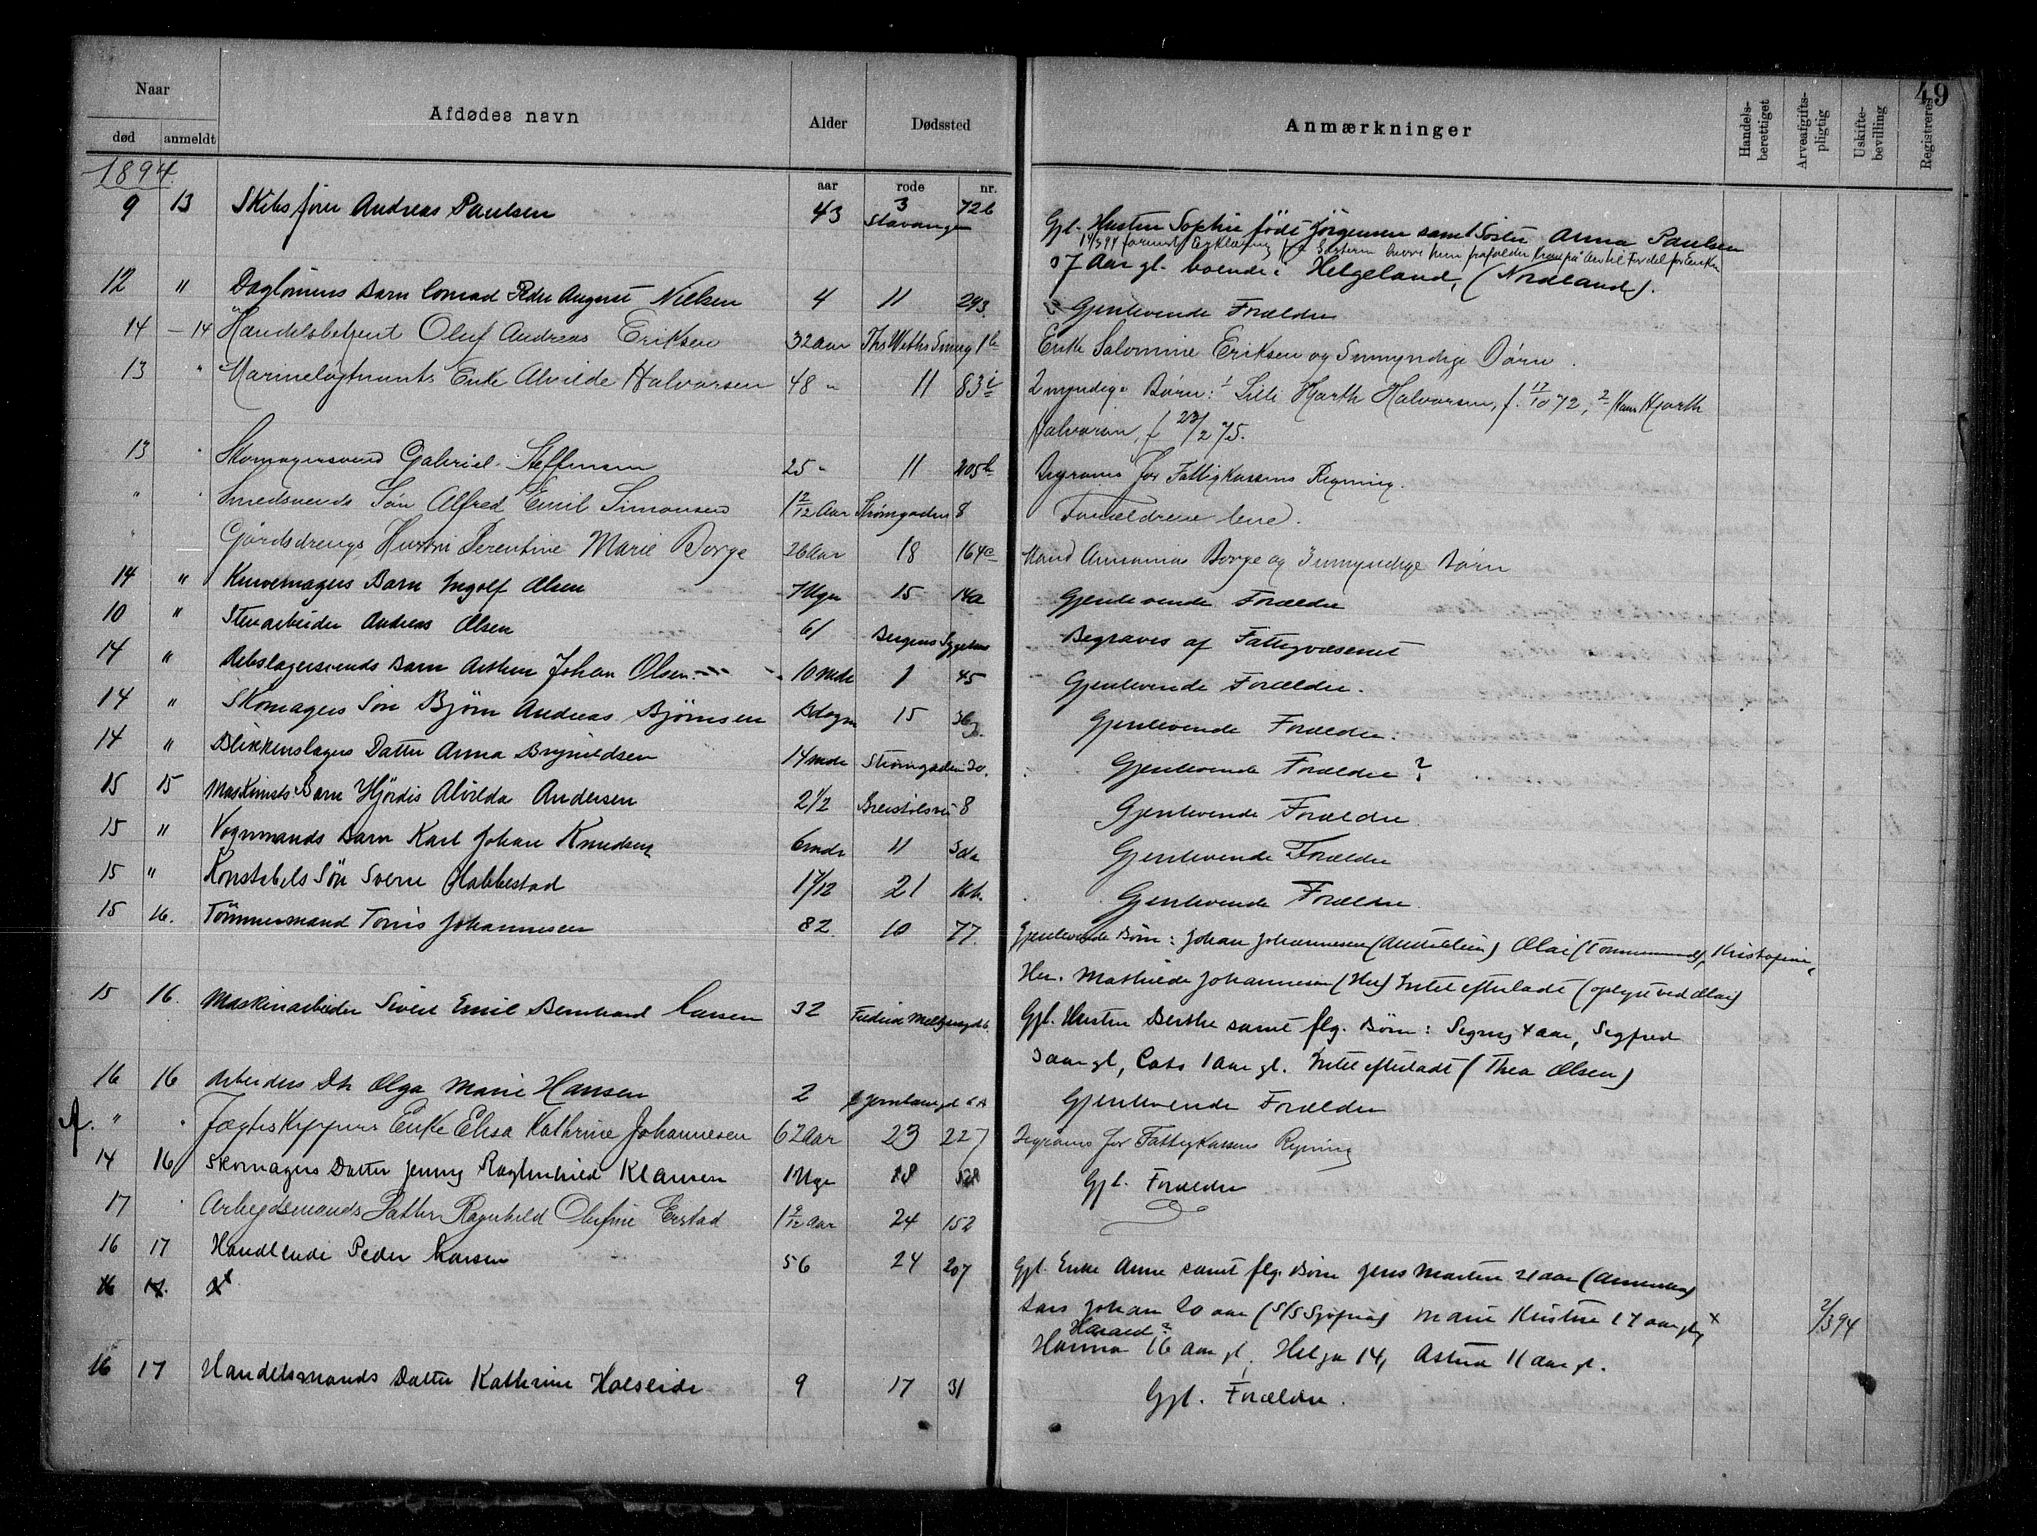 49
Naar
død anmeldt Afdødes navn Alder Dødssted Anmærkninger Handelsberettiget Arveafgiftspligtig Uskiftebevilling Registreres
aar rode nr.
1894
9 13 Skibsfører Andreas Paulsen 43 3 Stavanger 72b Gjl. Hustru Sophie født Jörgensen samt Søster Anna Paulsen
37 Aar gl. boende i Helgeland, (Nordland).
12 " Daglönners Barn Conrad Peder August Nielsen 4 11 243 Gjenlevende Forældre
14 – 14 Handelsbetjent Oluf Andreas Eriksen 32 Aar Ths Withs Smug 1b Enke Salomine Eriksen og 3 umyndige Børn.
13 " Marineløgtnants Enke Alvilde Halvorsen 48 " 11 83 i 2 myndige Børn: 1 Lilli Hjorth Halvorsen, f. 17/10 72, 2 Hans Hjorth
Halvorsen, f 23/2 75.
13 " Skomagersvend Gabriel Steffensen 25 " 11 205b Begraves for Fattigkassens Regning.
" " Smedsvends Søn Alfred Emil Simonsen 1 2/12 Aar Strømgaden 8 Forældrene leve.
" Gårdsdrengs Hustru Berentine Marie Borge 26 Aar 18 164c Mand Annanias Borge og 3 umyndige Børn
14 " Kurvemagers Barn Ingolf Olsen 7 Uger 15 14a Gjenlevende Forældre
10 " Stenarbeider Andreas Olsen 61 Bergens Sygehus Begraves af Fattigvæsenet
14 " Rebslagersvends Barn Arthur Johan Olsen 10 mdr 1 45 Gjenlevende Forældre.
14 " Skomagers Søn Bjørn Andreas Bjørnsen Døgn 15 Gjenlevende Forældre.
14 " Blikkenslagers Datter Anna Brynildsen 14 mdr Strømgaden 30. Gjenlevende Forældre?
15 15 Maskinists Barn Hjördis Alvilda Andersen 2 1/2 Breistølsvei 8 Gjenlevende Forældre.
15 " Vognmands Barn Karl Johan Knudsen 6 mdr 11 Gjenlevende Forældre
15 " Konstabels Søn Sverre Habbestad 1 7/12 21 16b. Gjenlevende Forældre.
15 16. Tömmermand Tönis Johannesen 82. 10 77. Gjenlevende Børn: Johan Johannesen (Australien) Olai (Tömmermand), Kristofine,
Her. Mathilde Johannesen (Her) Intet efterladt (oplyst ved Olai)
15 16. Maskinarbeider Sivert Emil Bernhard Larsen 32 Gjl. Hustru Berthe samt flg. Børn: Signy 4 aar, Sigfred
3 aar gl, Cato 1 aar gl. Intet efterladt (Thea Olsen)
16 16 Arbeiders Dtr Olga Marie Hansen 2 Gjenlevende Forældre
" " Jægtskippers Enke Elisa Kathrine Johannesen 62 Aar 23 227 Begraves for Fattigkassens Regning
14 16 Skomagers Datter Jenny Ragnhild Klausen 1 Uge 18 Gjl. Forældre
17 " Arbeidsmands Datter Ragnhild Olufine Erstad 1 9/12 Aar 24 152
16 17 Handlende Peder Larsen 56 24 207 Gjl. Enke Anne samt flg. Børn Jens Martin 21 aar (Amerika)
16 17. x Lars Johan 20 aar (S/S Sjøfna) Marie Kristine 17 aar gl x 2/3 94
Harald?
Hanna 16 aar gl, Helga 14, Astrid 11 aar gl.
16 17 Handelsmands Datter Kathrine Holseide 9 17 31 Gjl. Forældre.